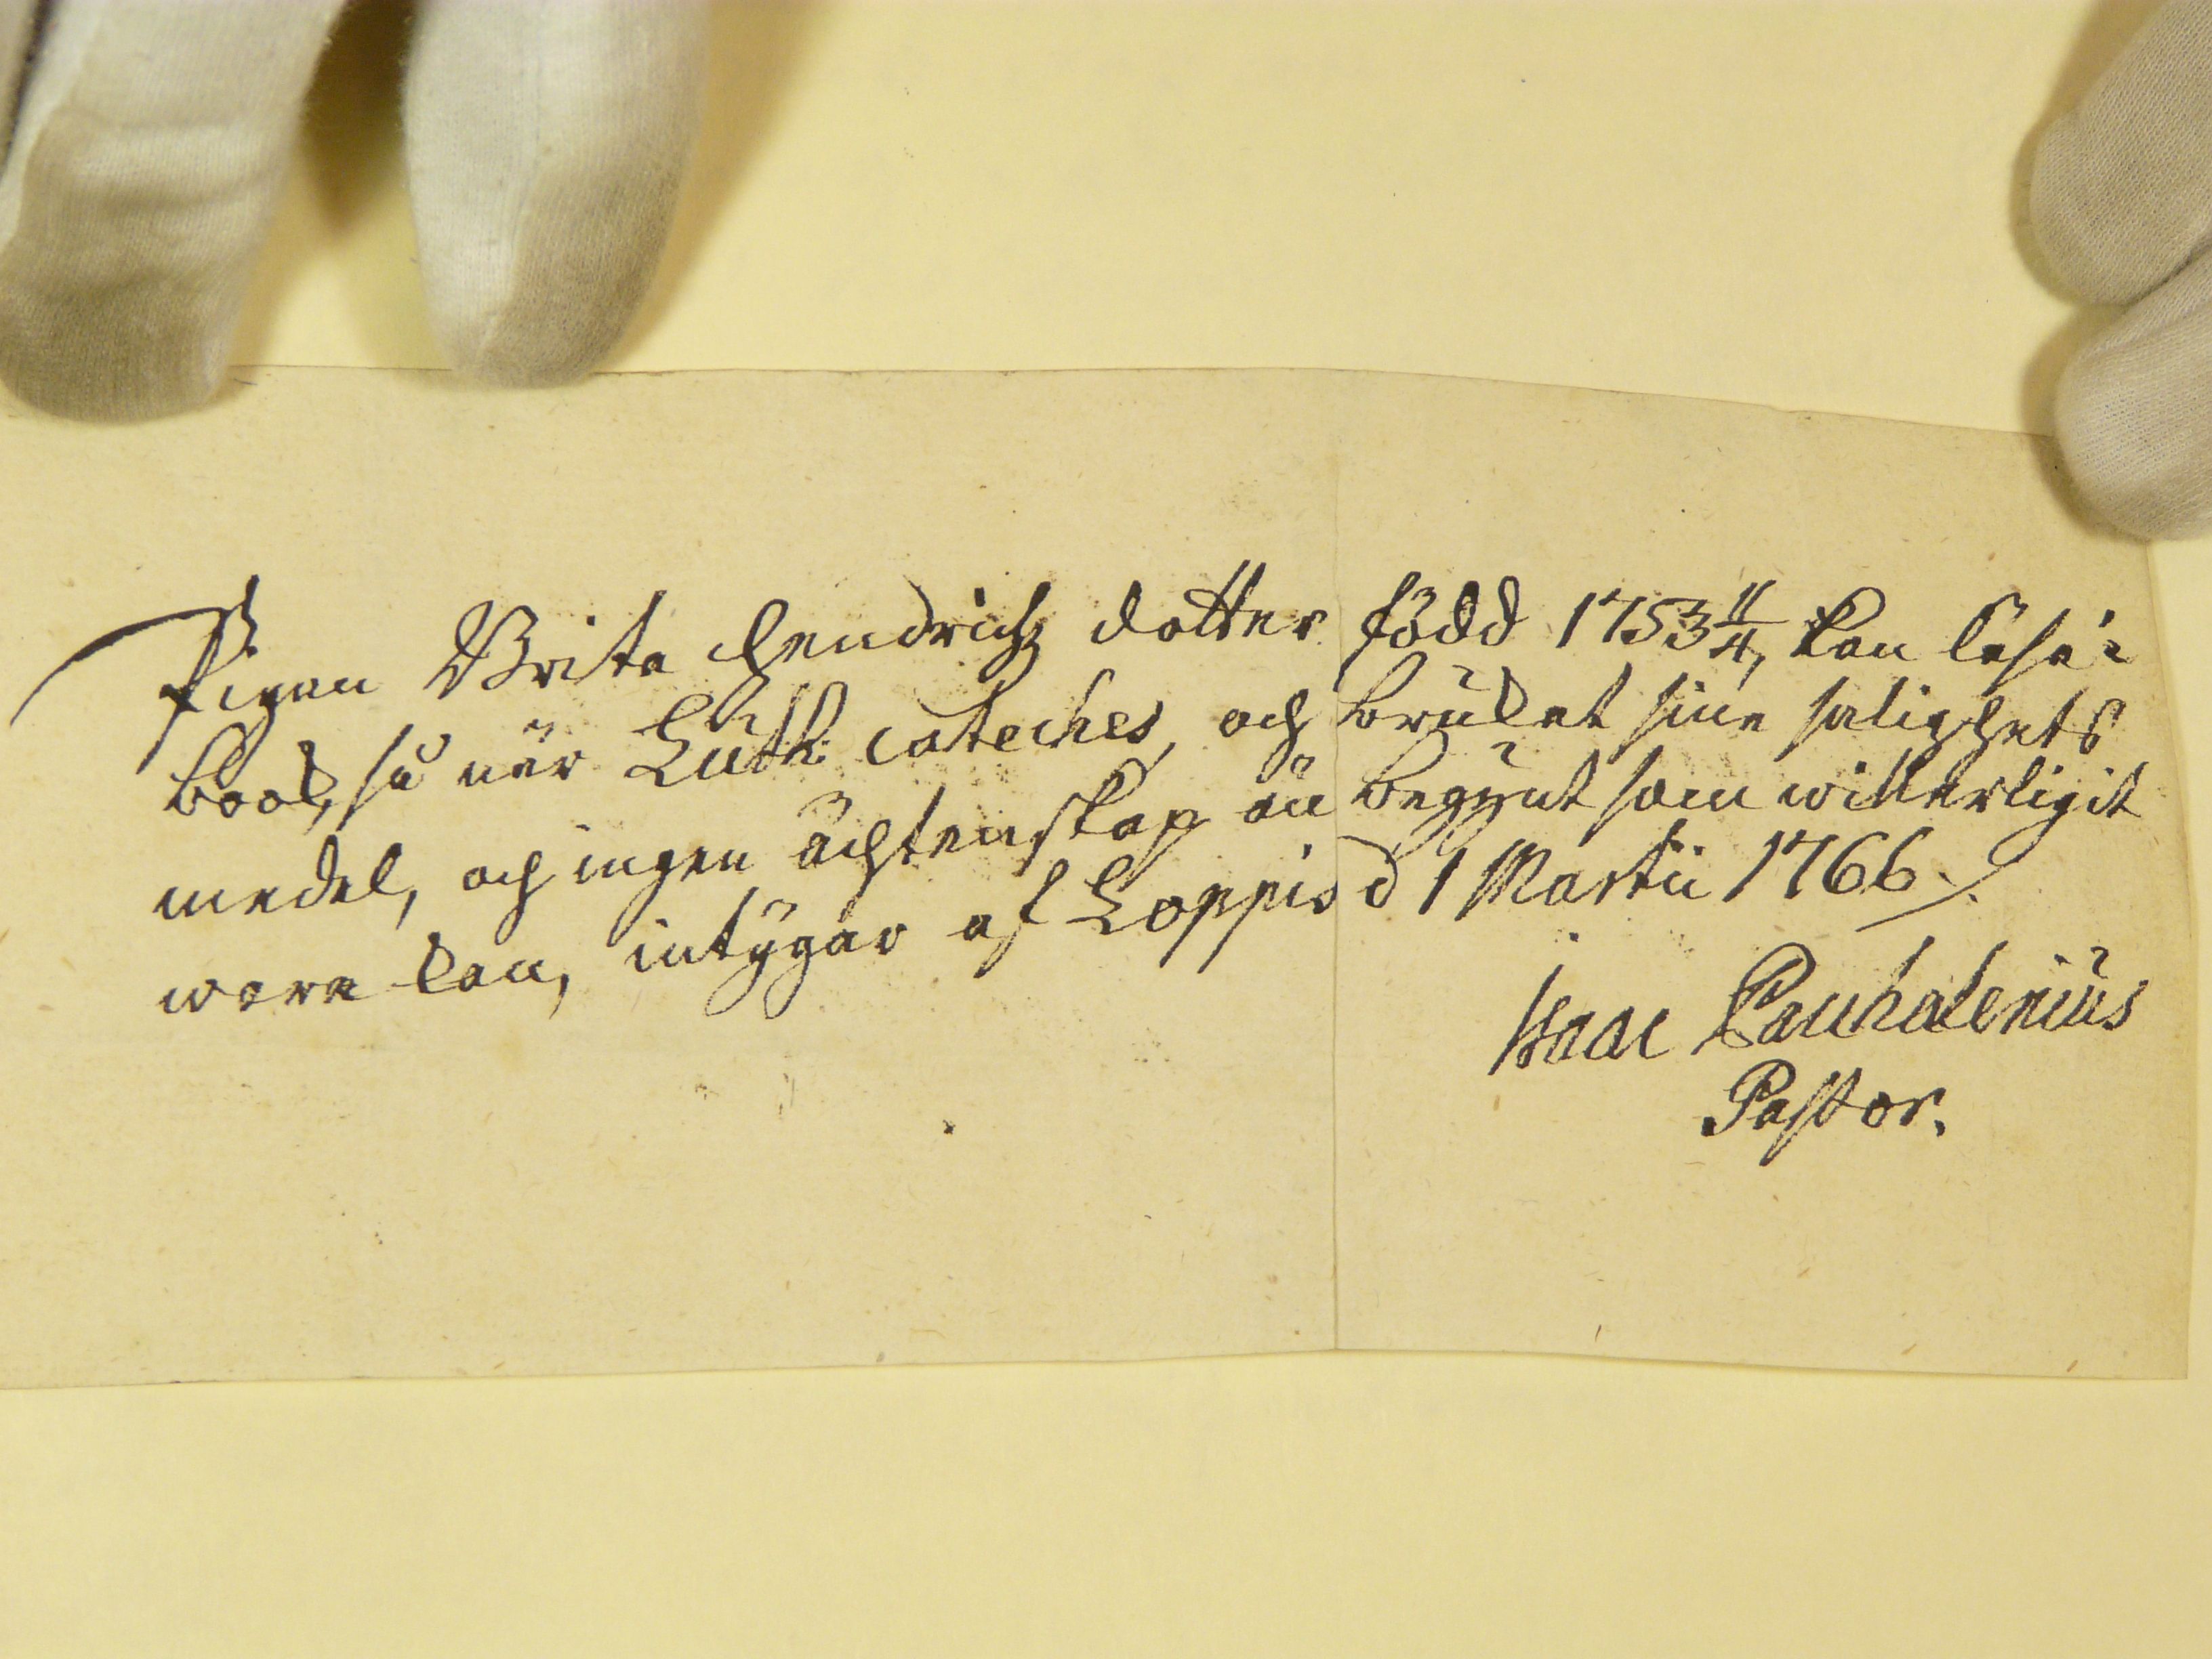 Pigan Brita Hendrichz dotter född 1753 11/4, kan läsa i
book, så när Luth: cateches, och brukat sine salighets
medel, och ingen ächtenskap än begynt som witterligit
wara kan, intÿgar af Loppis d 1 Martii 1766.
Isaac Pauhalenius
Pastor.